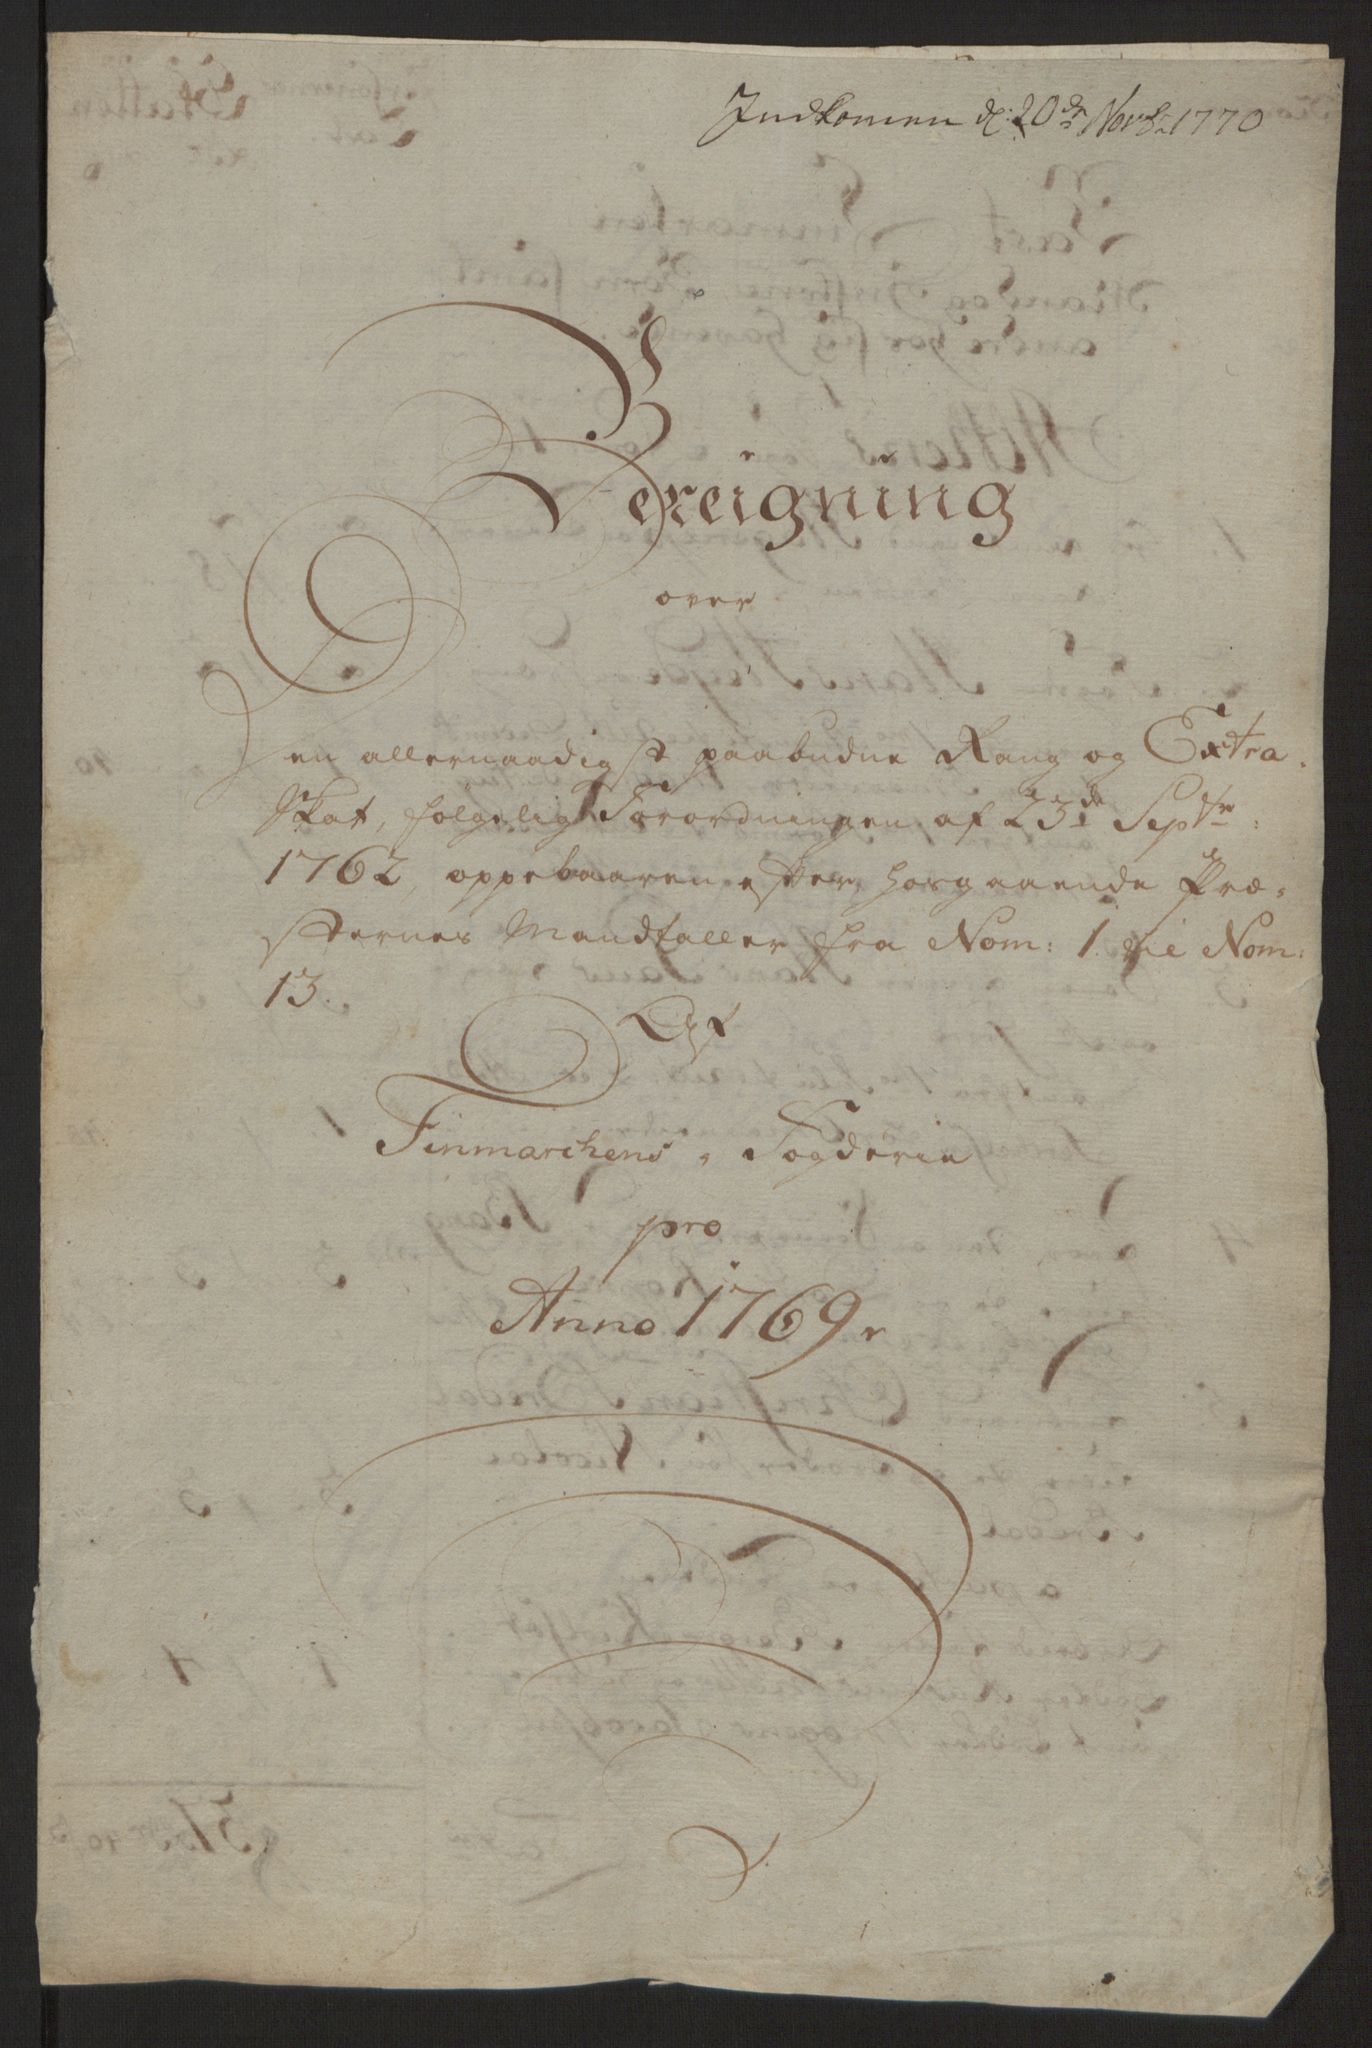 Indkomen d: 20de Novbr: 1770
Bereigning
over
Den allernaadigst paabudne Rang og Extra-
Skat, følgelig Forordningen af 23de Septbr:
1762, oppebaaren efter forgaaende Præ-
sternes Mandtaller fra Nom: 1. til Nom:
13.
Af
Finmarchens Fogderie
pro
Anno 1769